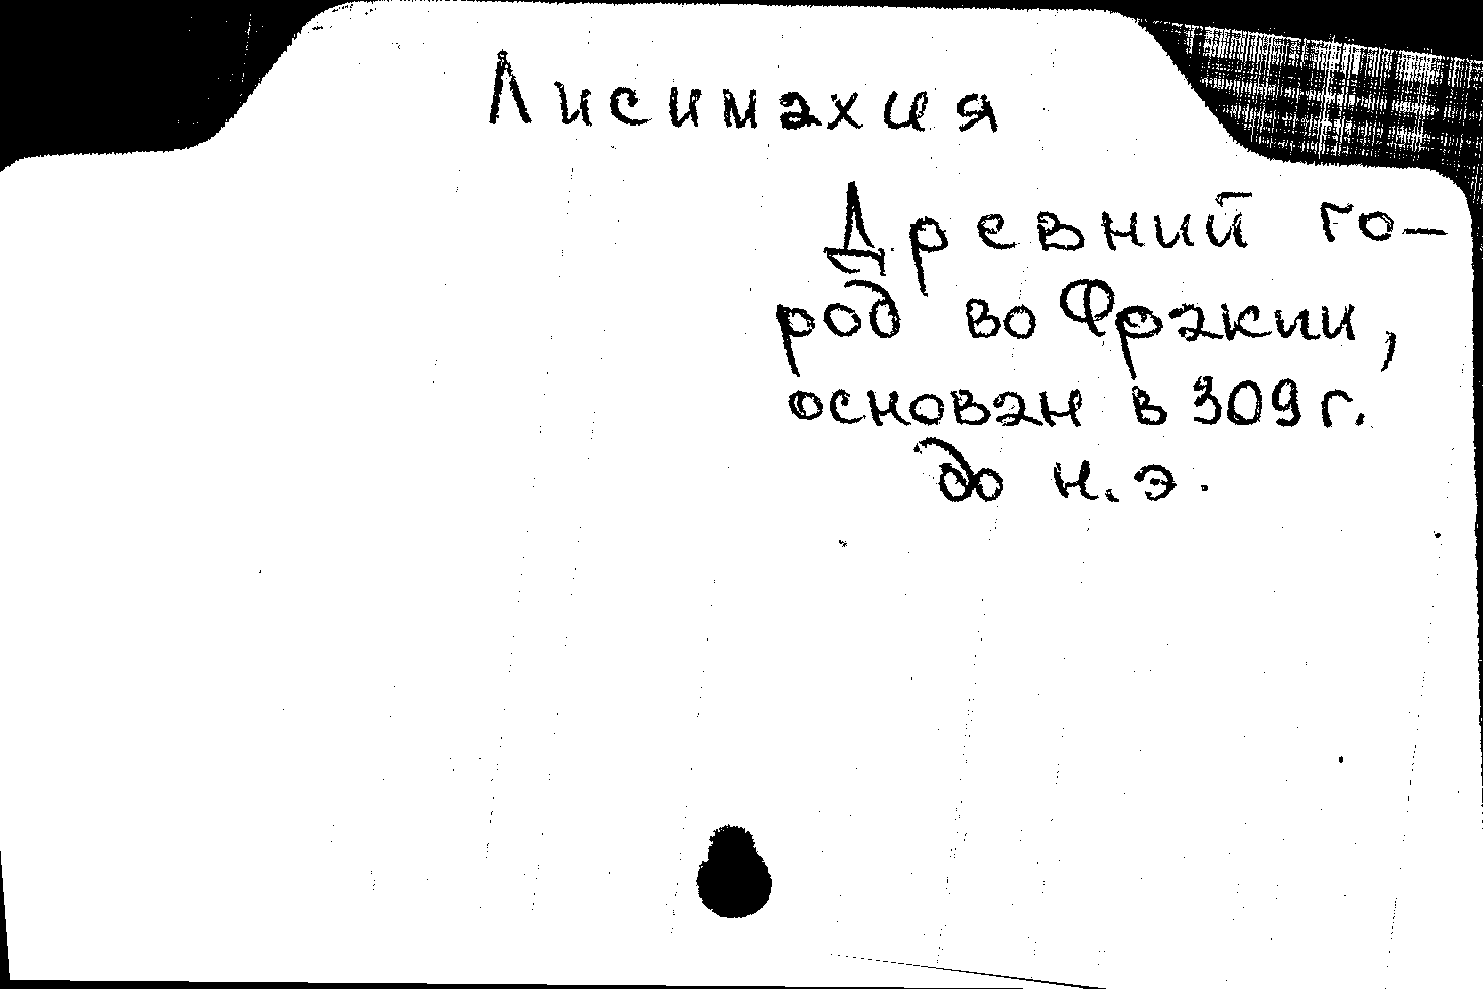 Лисимахия
Древний го-
род во Фракии,
основан в 309 г.
до н.э.